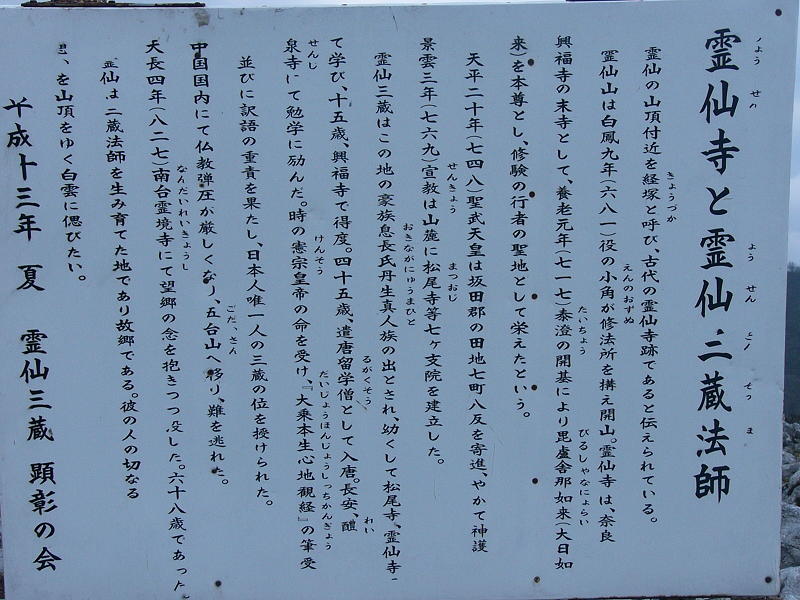 霊仙寺と霊仙三蔵法師
霊仙の山頂付近を経塚と呼び、古代の霊仙寺跡であると伝えられている。
きょうづか
霊仙山は白鳳九年(六八一)役の小角が修法所を構え開山。霊仙寺は、奈良
えんのおずぬ
興福寺の末寺として、養老元年(七一七)泰澄の開基により毘盧舎那如来(大日如
たいちょう
びるしゃなにょらい
来)を本尊とし、修験の行者の聖地として栄えたという。
天平二十年(七四八)聖武天皇は坂田郡の田地七町八反を寄進、やがて神護
景雲三年(七六九)宣教は山麓に松尾寺等七ヶ支院を建立した。
せんきょう
まつおじ
霊仙三蔵はこの地の豪族息長氏丹生真人族の出とされ、幼くして松尾寺、霊仙寺
おきながにゅうまひと
て学び、十五歳、興福寺で得度。四十五歳、遣唐留学僧として入唐。長安、醴
るがくそう
れい
泉寺にて勉学に励んだ。時の憲宗皇帝の命を受け、『大乗本生心地観経』の筆受
せんじ
けんそう
だいじょうほんじょうしっちかんぎょう
並びに訳語の重責を果たし、日本人唯一人の三蔵の位を授けられた。
中国国内にて仏教弾圧が厳しくなり、五台山へ移り、難を逃れた。
天長四年(八二七)南台霊境寺にて望郷の念を抱きつつ没した。六十八歳であった
なんだいれいきょうし
霊仙は三蔵法師を生み育てた地であり故郷である。彼の人の切なる
を山頂をゆく白雲に偲びたい。
平成十三年 夏 霊仙三蔵 顕彰の会